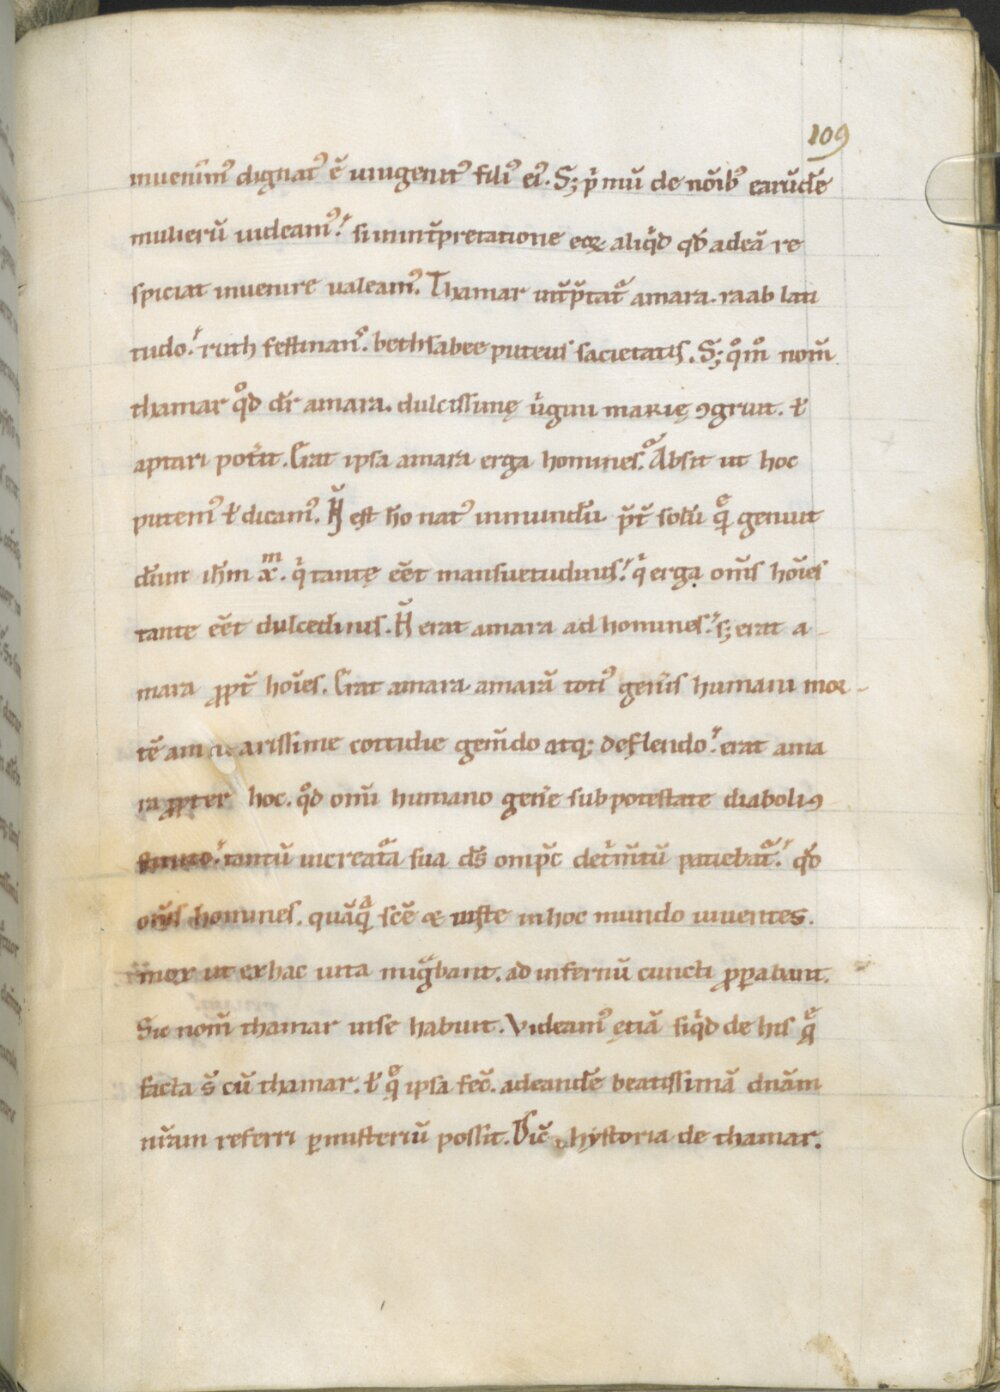 109
inuenim᷒ dignat᷒ ē unigenit᷒ fili᷒ ei᷒. S; p̄mū de nōib᷒ earūdē
mulierū uideam᷒. si in int̄pretatione eoꝝ aliq̄d qđ ad eā re
spiciat inuenire ualeam᷒. Thamar int̄p̄tat᷑ amara. raab lati
tudo. ruth festinans. bethsabee puteus sacietatis. S; qͦmͦ nom̄
thamar qͦd dr̄ amara. dulcissimę ūgini marię ꝯgruit. ł
aptari pot̄it. Erat ipsa amara erga homines. Absit ut hoc
putem᷒ ł dicam᷒. N̄ est hō nat᷒ in mundū p̄t̄ solū q̄ genuit
dn̄m ih̄m xᵐ. q̄ tantę eēt mansuetudinis. q̄ erga om̄s hoīes
tante eēt dulcedinis. N̄ erat amara ad homines. s; erat a
mara ꝓpt̄ hoīes. Erat amara amarā toti᷒ gen̄is humani mor
tē am arissime cottidie gem̄do atq; deflendo. erat ama
ra ꝓpter hoc. qͦd om̄i humano gen̄e sub potestate diaboli ꝯ
tantū in creat᷑a sua ds̄ omp̄c det̄m̄tū patiebat᷑. qđ
om̄s homines. quāq̄ scē & iuste in hoc mundo uiuentes.
mox ut ex hac uita mig̃bant. ad infernū cuncti ꝓꝑabant.
Sic nom̄ thamar in se habuit. Videam᷒ ętiā siq̄d de his q̄
facta s̄ cū thamar. ł q̄ ipsa fec̄. ad eandē beatissimā dnām
nr̄am referri ꝑ misteriū possit. Dic̄ hystoria de thamar.